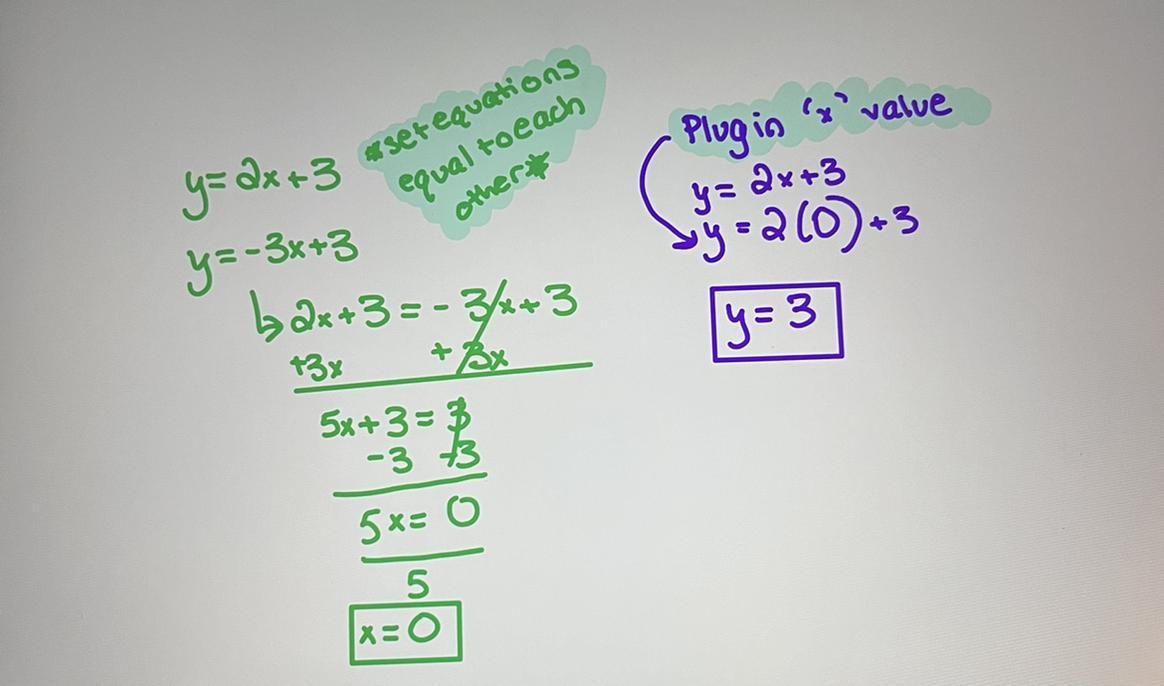 y=2x+3
*set equations
equal to each
other*
y=-3x+3
2x+3=-3x+3
+3x +3x
5x+3=3
-3 -3
5x=0
5
x=0
Plug in "x" value
y=2x+3
y=2(0)+3
y=3